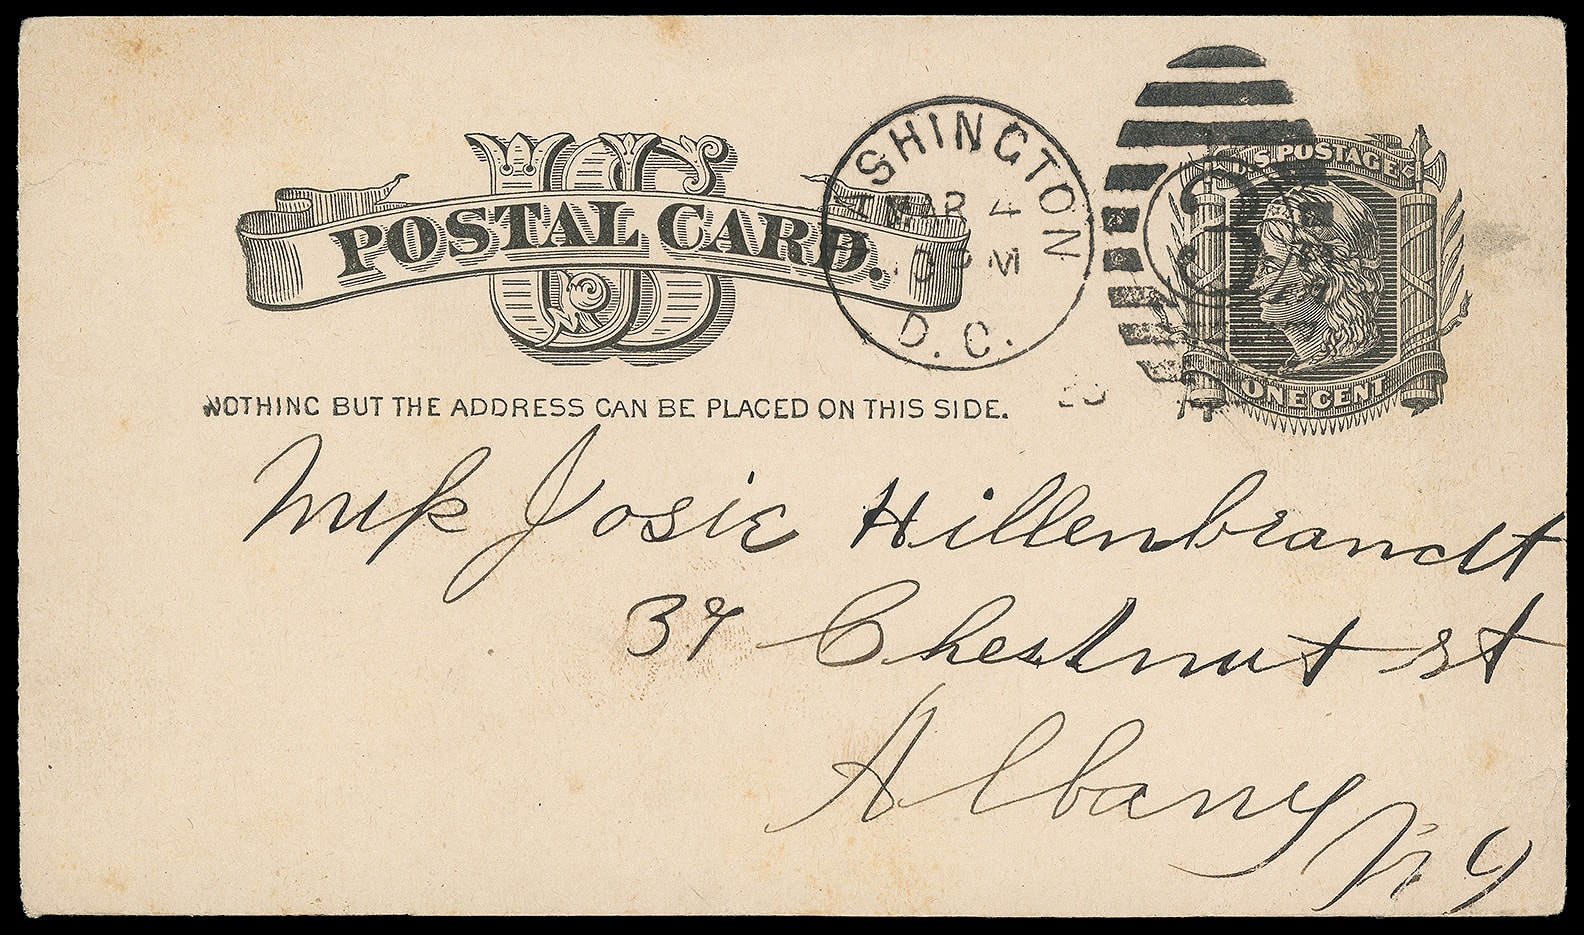 US
POSTAL CARD.
WASHINGTON
MAR 4
PM
D.C.
U.S. POSTAGE
ONE CENT
NOTHING BUT THE ADDRESS CAN BE PLACED ON THIS SIDE.
Miss Josie Hillenbrandt
37 Chestnut st
Albany N Y